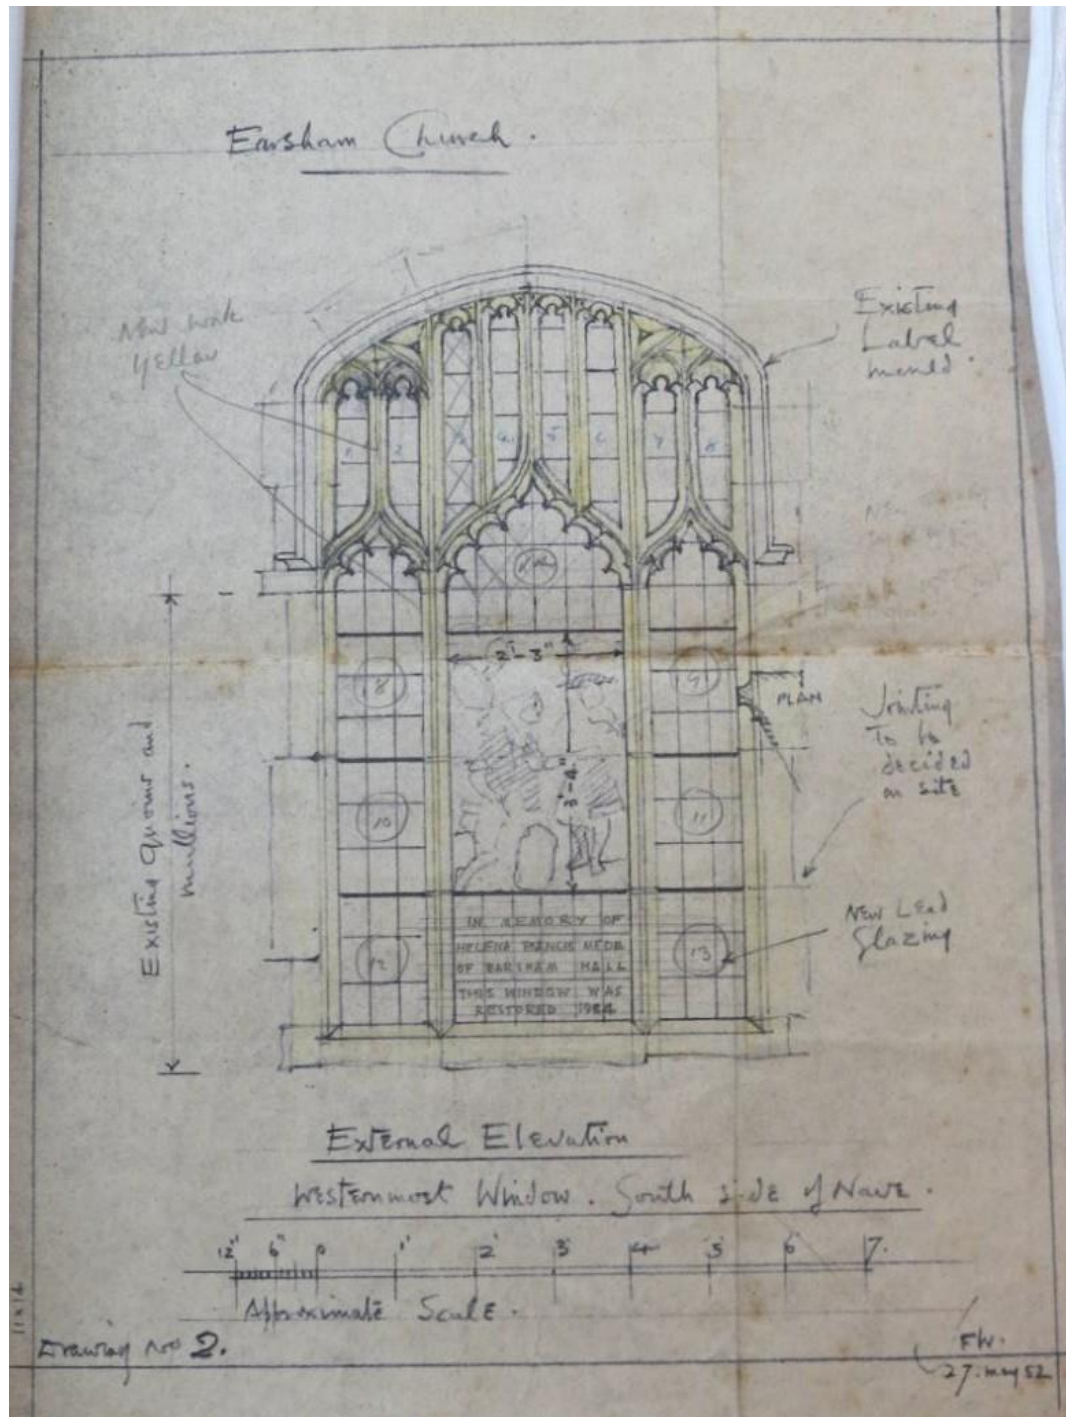 Earsham Church.
New work
yellow
Existing
Label
mould.
1
2
3
4
5
6
7
8
2'-3"
3'-4"
8
9
10
11
12
13
PLAN
Jointing
to be
decided
on site
Existing quoins and
mullions.
New Lead
Glazing
IN MEMORY OF
HELENA
OF EARSHAM HALL
THIS WINDOW WAS
RESTORED
External Elevation
Westernmost Window. South side of Nave.
12" 6" 0 1' 2' 3' 4 5' 6' 7.
Approximate Scale.
Drawing No 2.
FW.
27. May 52